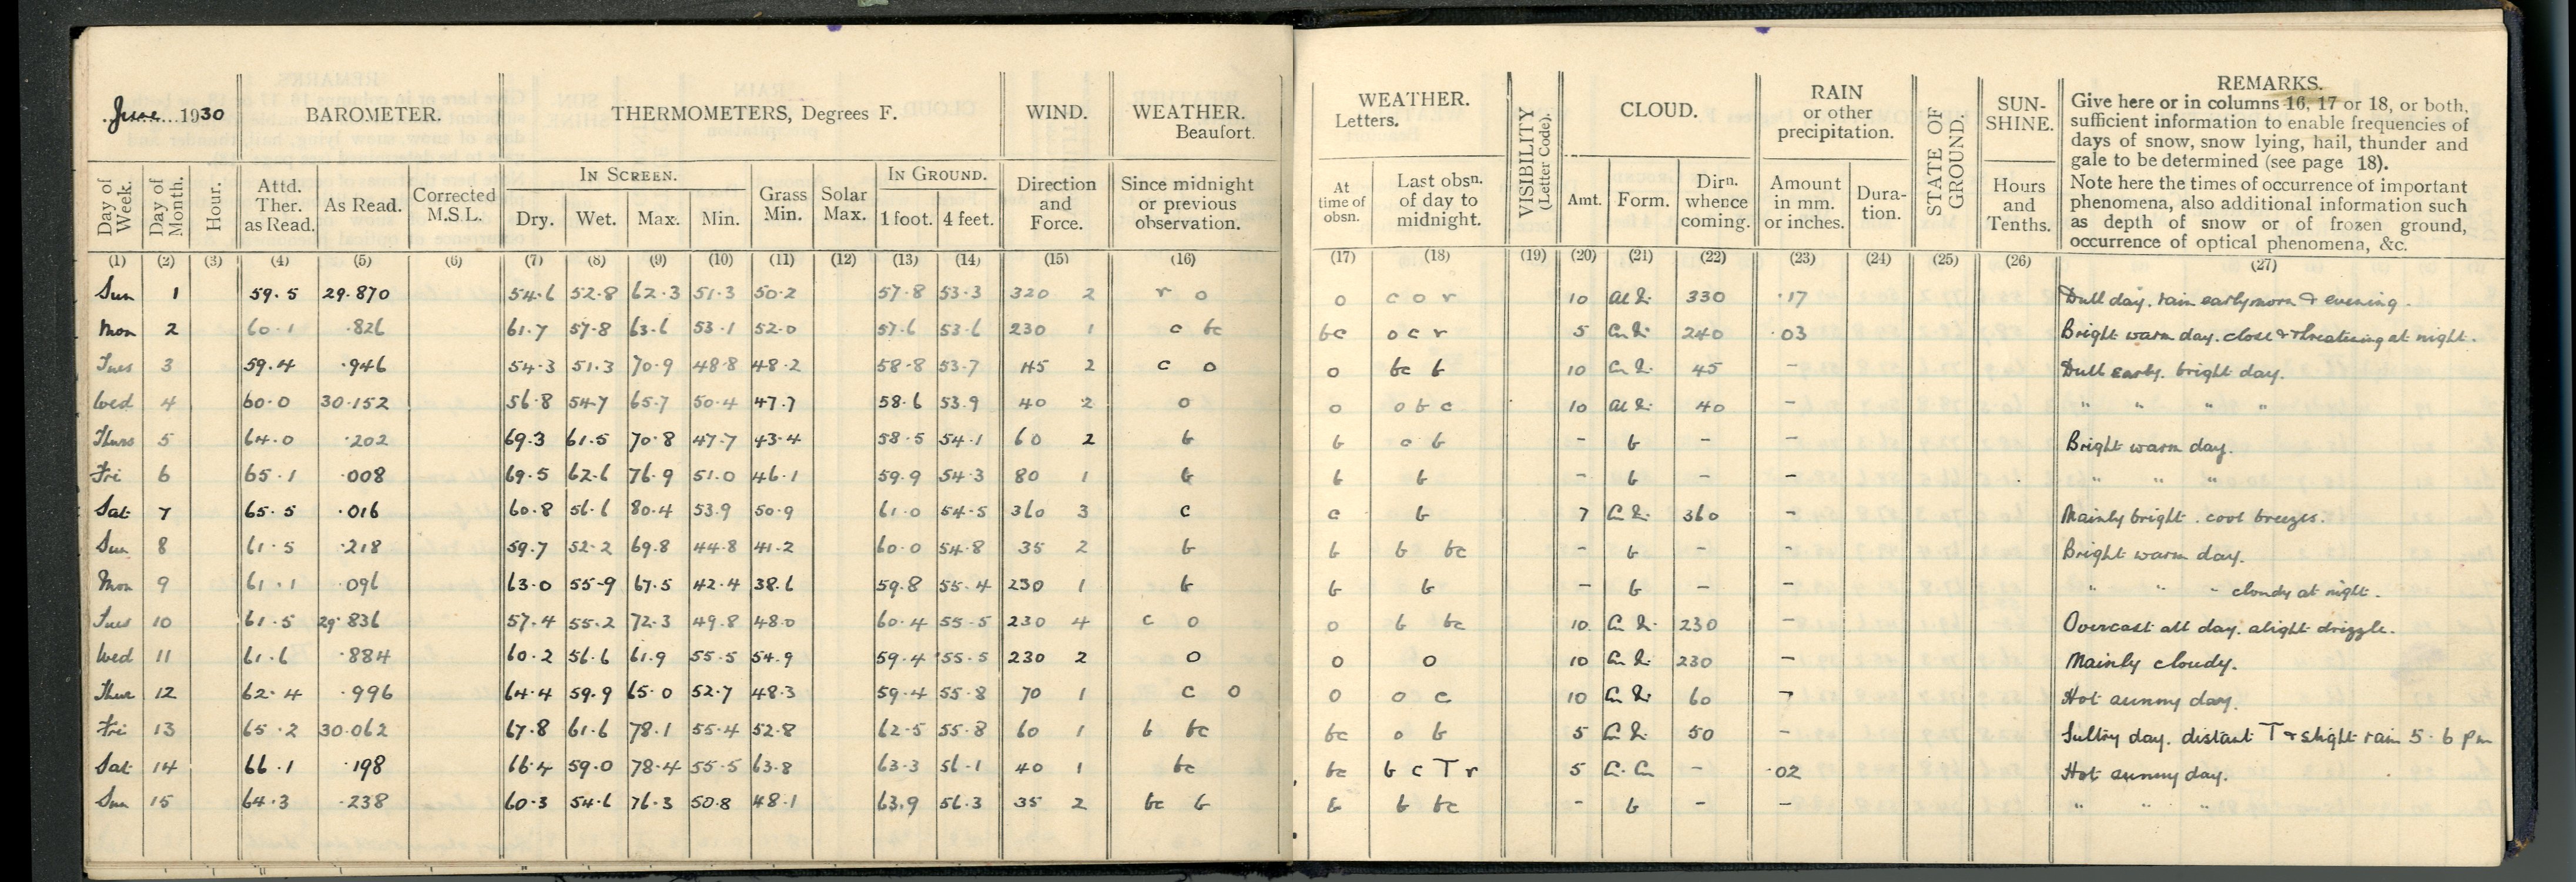 June 1930 BAROMETER. THERMOMETERS, Degrees F. WIND. WEATHER. Beaufort. WEATHER. Letters. VISIBILITY (Letter Code). CLOUD. RAIN or other precipitation. STATE OF GROUND. SUN-SHINE. REMARKS.
Give here or in columns 16, 17 or 18, or both,
sufficient information to enable frequencies of
days of snow, snow lying, hail, thunder and
gale to be determined (see page 18).
Note here the times of occurrence of important
phenomena, also additional information such
as depth of snow or of frozen ground,
occurrence of optical phenomena, &c.
Day of Week. Day of Month. Hour. Attd. Ther. as Read. As Read. Corrected M.S.L. IN SCREEN. Dry. Wet. Max. Min. Grass Min. Solar Max. IN GROUND. 1 foot. 4 feet. Direction and Force. Since midnight or previous observation. At time of obsn. Last obsn. of day to midnight. Amt. Form. Dirn. whence coming. Amount in mm. or inches. Dura-tion. Hours and Tenths.
(1) (2) (3) (4) (5) (6) (7) (8) (9) (10) (11) (12) (13) (14) (15) (16) (17) (18) (19) (20) (21) (22) (23) (24) (25) (26) (27)
Sun 1 59.5 29.870 54.6 52.8 62.3 51.3 50.2 57.8 53.3 320 2 r o o c o r 10 330 .17 Dull day. rain early morn & evening.
Mon 2 60.1 .826 61.7 57.8 63.6 53.1 52.0 57.6 53.6 230 1 c bc bc o c r 5 240 .03 Bright warm day. close & threatening at night.
Tues 3 59.4 .946 54.3 51.3 70.9 48.8 48.2 58.8 53.7 45 2 c o o bc b 10 45 - Dull early. bright day.
Wed 4 60.0 30.152 56.8 54.7 65.7 50.4 47.7 58.6 53.9 40 2 o o o b c 10 40 - " " " "
Thurs 5 64.0 .202 69.3 61.5 70.8 47.7 43.4 58.5 54.1 60 2 b b c b - b - - Bright warm day.
Fri 6 65.1 .008 69.5 62.6 76.9 51.0 46.1 59.9 54.3 80 1 b b b - b - - " " "
Sat 7 65.5 .016 60.8 56.6 80.4 53.9 50.9 61.0 54.5 360 3 c c b 7 360 - Mainly bright. cool breezes.
Sun 8 61.5 .218 59.7 52.2 69.8 44.8 41.2 60.0 54.8 35 2 b b b bc - b - - Bright warm day.
Mon 9 61.1 .096 63.0 55.9 67.5 42.4 38.6 59.8 55.4 230 1 b b b - b - - " " " cloudy at night.
Tues 10 61.5 29.836 57.4 55.2 72.3 49.8 48.0 60.4 55.5 230 4 c o o b bc 10 230 - Overcast all day. slight drizzle.
Wed 11 61.6 .884 60.2 56.6 61.9 55.5 54.9 59.4 55.5 230 2 o o o 10 230 - Mainly cloudy.
Thur 12 62.4 .996 64.4 59.9 65.0 52.7 48.3 59.4 55.8 70 1 c o o o c 10 60 - Hot sunny day.
Fri 13 65.2 30.062 67.8 61.6 78.1 55.4 52.8 62.5 55.8 60 1 b bc bc o b 5 50 - Sultry day. distant T & slight rain 5-6 pm
Sat 14 66.1 .198 66.4 59.0 78.4 55.5 63.8 63.3 56.1 40 1 bc bc b c T r 5 - .02 Hot sunny day.
Sun 15 64.3 .238 60.3 54.6 76.3 50.8 48.1 63.9 56.3 35 2 bc b b b bc - b - - " " "